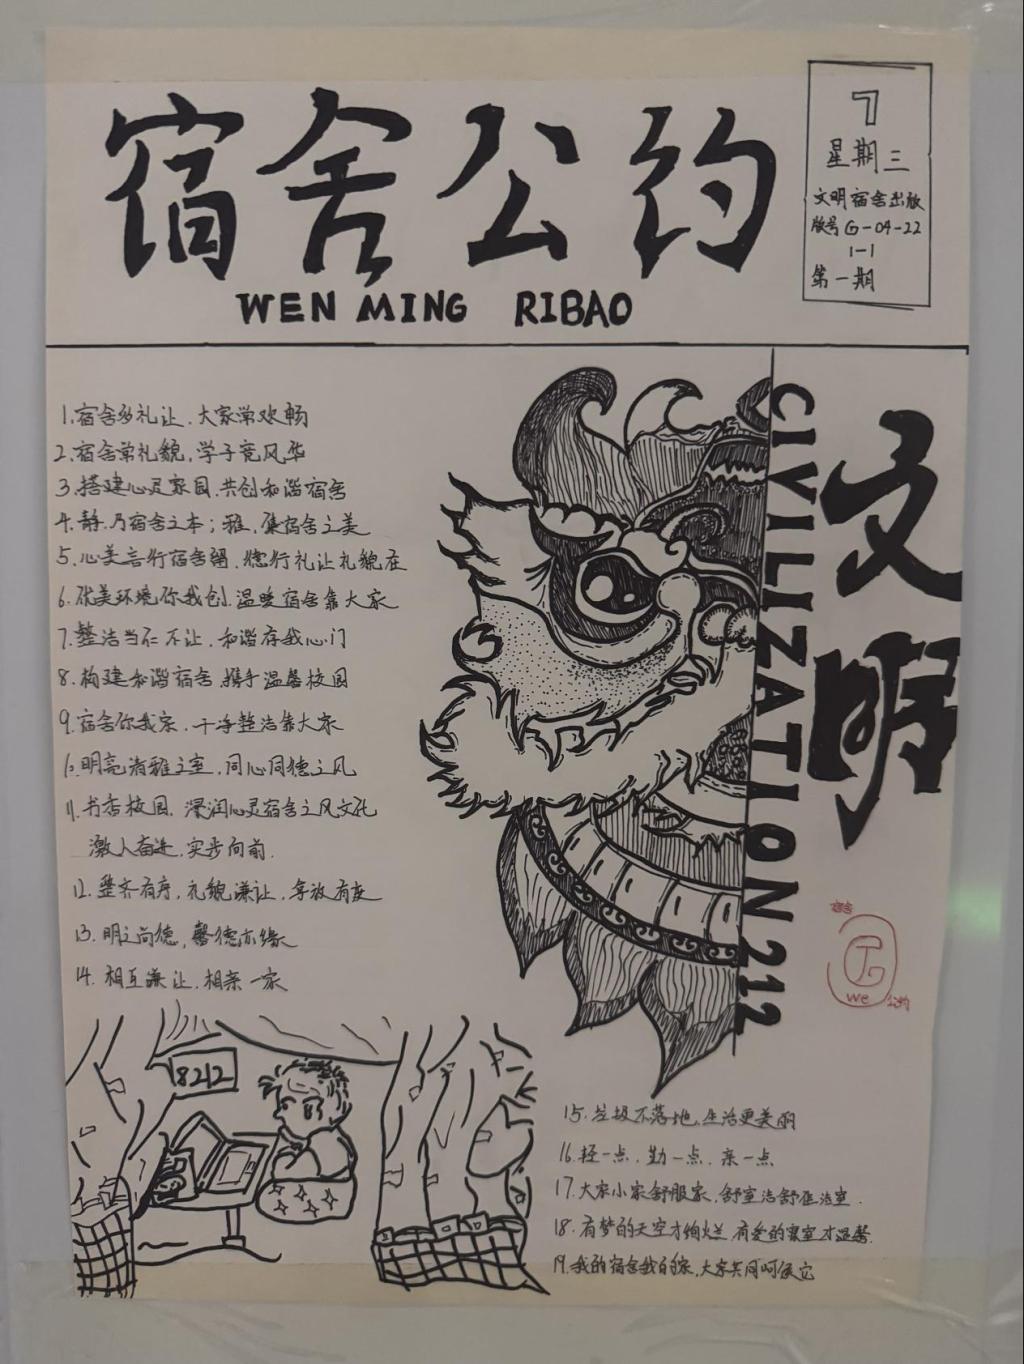 宿舍公约
WEN MING RIBAO
7
星期三
文明宿舍出版
版号G-04-22
1-1
第一期
1.宿舍多礼让.大家常欢畅
2.宿舍常礼貌,学子竞风华
3.搭建心灵家园.共创和谐宿舍
4.静.乃宿舍之本;雅.集宿舍之美
5.心美言行宿舍留.您行礼让礼貌在
6.优美环境你我创.温暖宿舍靠大家
7.整洁当仁不让.和谐存我心门
8.构建和谐宿舍.携手温馨校园
9.宿舍你我家.干净整洁靠大家
10.明亮清雅之室,同心同德之风
11.书香校园.浸润心灵宿舍之风文化
激人奋进.实步向前.
12.整齐有序,礼貌谦让,拿放有度
13.明之尚德,馨德亦缘
14.相互谦让.相亲一家
文明
CIVILIZATION 212
宿舍
we
公约
8212
15.垃圾不落地,生活更美丽
16.轻一点.勤一点.亲一点
17.大家小家舒服家,舒室洁舒在洁室.
18.有梦的天空才绚烂.有爱的寝室才温馨.
19.我的宿舍我的家,大家共同呵候它